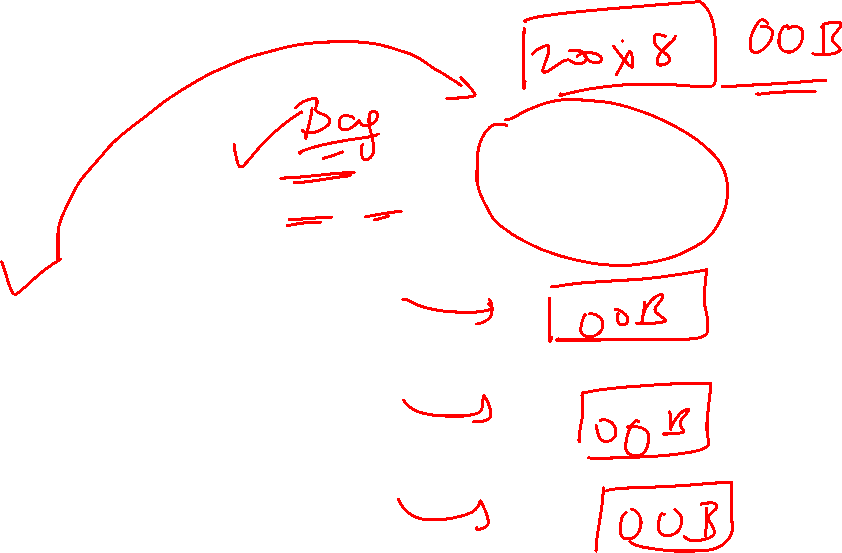 200x8 OOB
Bag
OOB
OOB
OOB